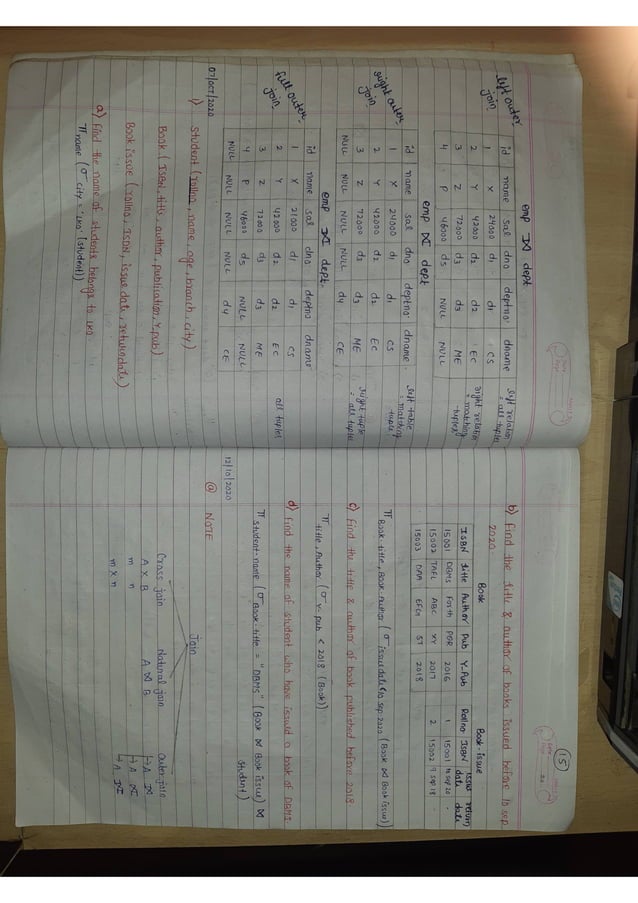 emp ⟕ dept
left outer join
id name sal dno deptno dname
1 X 24000 d1 d1 CS
2 Y 42000 d2 d2 EC
3 Z 72000 d3 d3 ME
4 P 46000 d5 NULL NULL
left relation = all tuples
right relation = matching tuples
emp ⟖ dept
right outer join
id name sal dno deptno dname
1 X 24000 d1 d1 CS
2 Y 42000 d2 d2 EC
3 Z 72000 d3 d3 ME
NULL NULL NULL NULL d4 CE
left table = matching tuples
right tuple = all tuples
emp ⟗ dept
full outer join
id name sal dno deptno dname
1 X 21000 d1 d1 CS
2 Y 42000 d2 d2 EC
3 Z 72000 d3 d3 ME
4 P 46000 d5 NULL NULL
NULL NULL NULL NULL d4 CE
all tuples
07/OCT/2020
1) Student (rollno, name, age, branch, city)
Book (ISBN, title, author, publication, Y.pub)
Book issue (rollno, ISBN, issue date, return date)
a) Find the name of students belongs to LKO.
π name (σ city = 'LKO' (student))
15
b) Find the title & author of books issued before 10 sep 2020.
Book
ISBN title Author Pub Y-Pub
15001 DBMS Forth PQR 2016
15002 TAFL ABC XY 2017
15003 DAA EFG ST 2018
Book-issue
Rollno ISBN issue date return date
1 15001
2 15002
π Book.title, Book.Author (σ issuedate<10 sep 2020 (Book ⋈ Book issue))
c) Find the title & author of book published before 2018.
π title, Author (σ Y-pub < 2018 (Book))
d) Find the name of student who have issued a book of DBMS.
π student.name (σ Book.title = "DBMS" (Book ⋈ Book issue) ⋈ student)
12/10/2020
@ NOTE
Join
Cross join Natural join Outer join
A X B A ⋈ B → A ⟕
m n → A ⟖
m x n → A ⟗